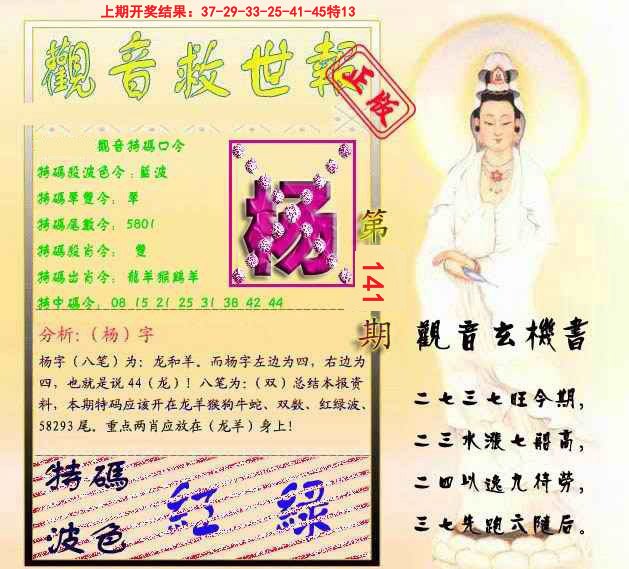 上期开奖结果：37-29-33-25-41-45特13
觀音救世報
正版
觀音特碼口令
特碼段波色令：藍波
特碼單雙令： 單
特碼尾數令： 5801
特碼段肖令： 雙
特碼出肖令： 龍羊猴鷄羊
特中碼令： 08 15 21 25 31 38 42 44
杨
第
141
期
分析:（杨）字
杨字（八笔）为: 龙和羊. 而杨字左边为四, 右边为
四, 也就是说44（龙）! 八笔为:（双）总结本报资
料, 本期特码应该开在龙羊猴狗牛蛇、双数、红绿波、
58293尾. 重点两肖应放在（龙羊）身上!
特碼
波色
紅 綠
觀音玄機書
二七三七旺今期，
二三水漲七船高，
二四以逸九待勞，
三七先跑六隨后。